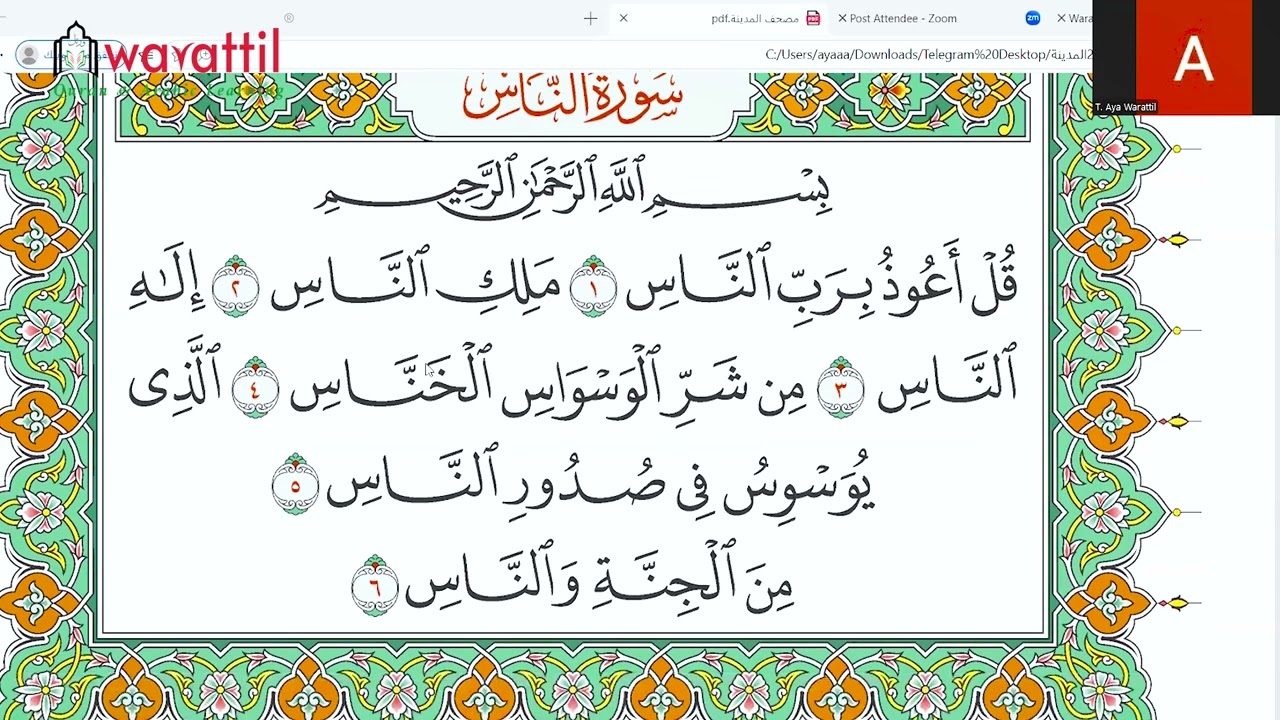 مصحف المدينة.pdf
Post Attendee - Zoom
zm
Wara
C:/Users/ayaaa/Downloads/Telegram%20Desktop/
warattil
Quran & Arabic Learning
A
T. Aya Warattil
سُورَةُ النَّاسِ
بِسْمِ ٱللَّهِ ٱلرَّحْمَٰنِ ٱلرَّحِيمِ
قُلْ أَعُوذُ بِرَبِّ ٱلنَّاسِ ١ مَلِكِ ٱلنَّاسِ ٢ إِلَٰهِ
ٱلنَّاسِ ٣ مِن شَرِّ ٱلْوَسْوَاسِ ٱلْخَنَّاسِ ٤ ٱلَّذِى
يُوَسْوِسُ فِى صُدُورِ ٱلنَّاسِ ٥
مِنَ ٱلْجِنَّةِ وَٱلنَّاسِ ٦